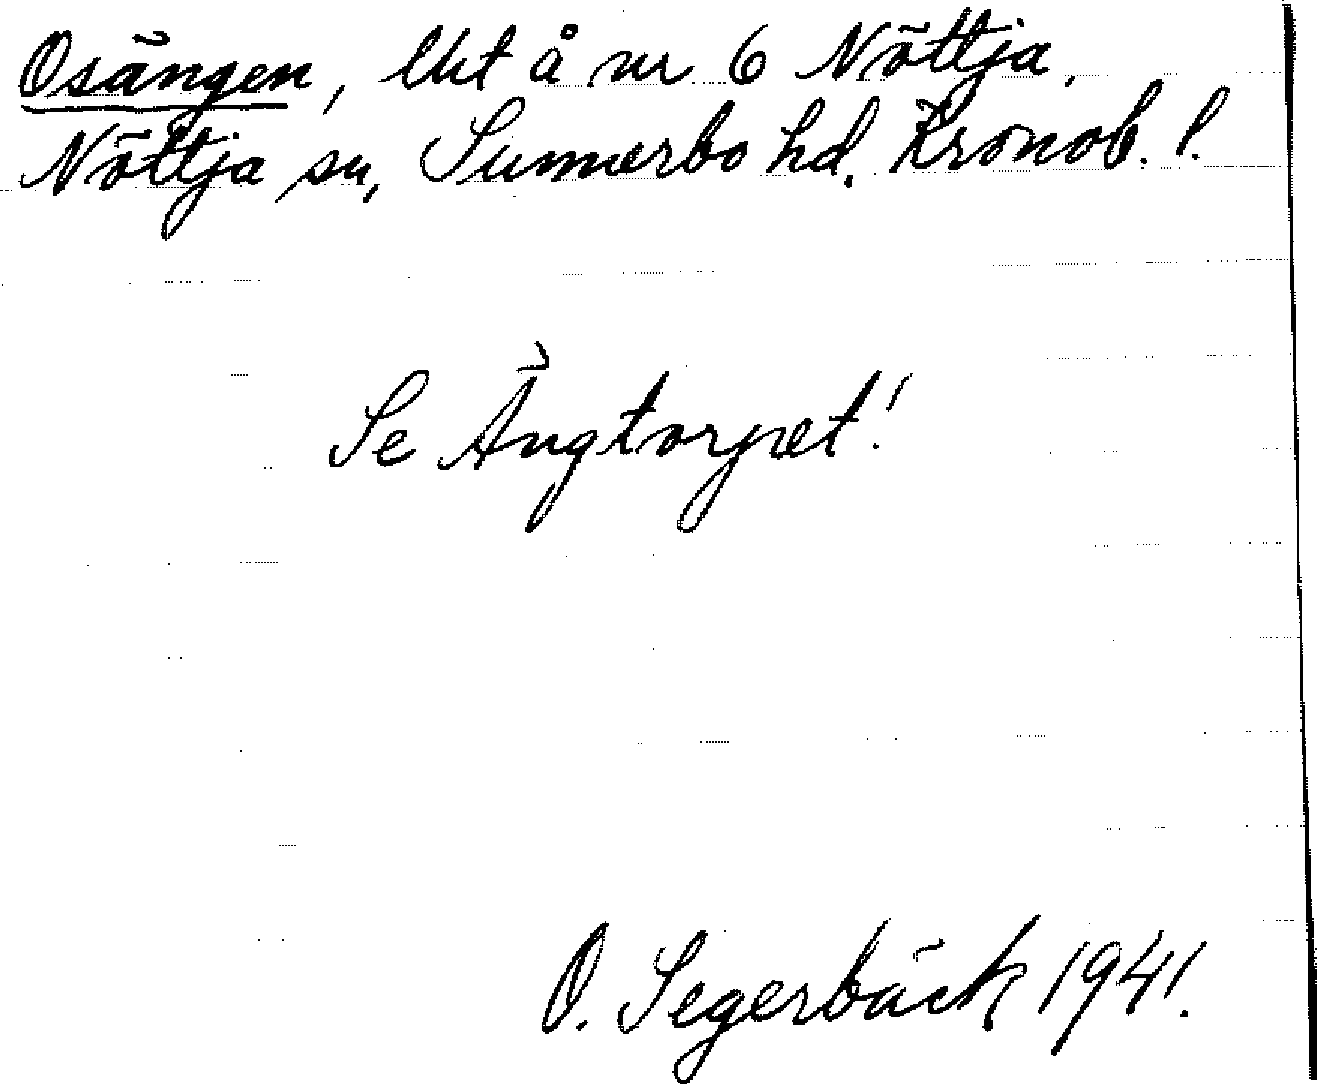 Osängen, Utt å nr 6 Nöttja.
Nöttja sn, Sunnerbo hd. Kronob. l.
Se Ängtorpet!
O. Segerbäck 1941.